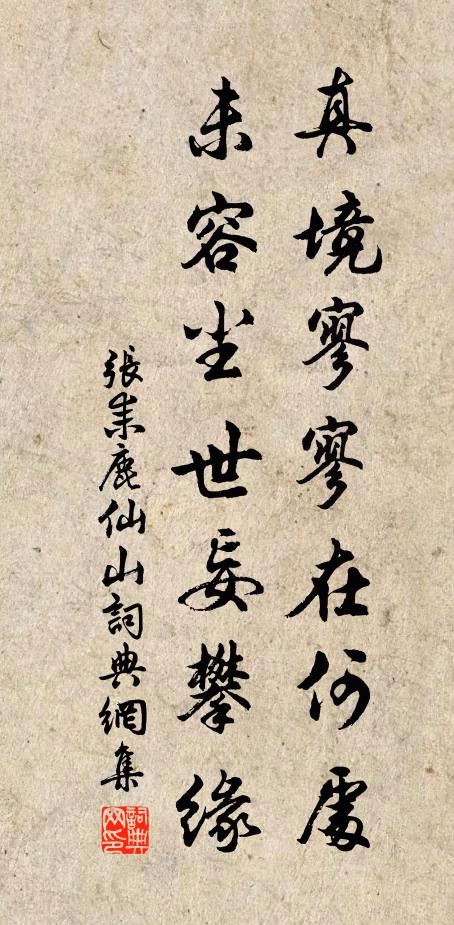 真境寥寥在何處
未容尘世妄攀緣
張耒鹿仙山詞典網集
詞典
网印